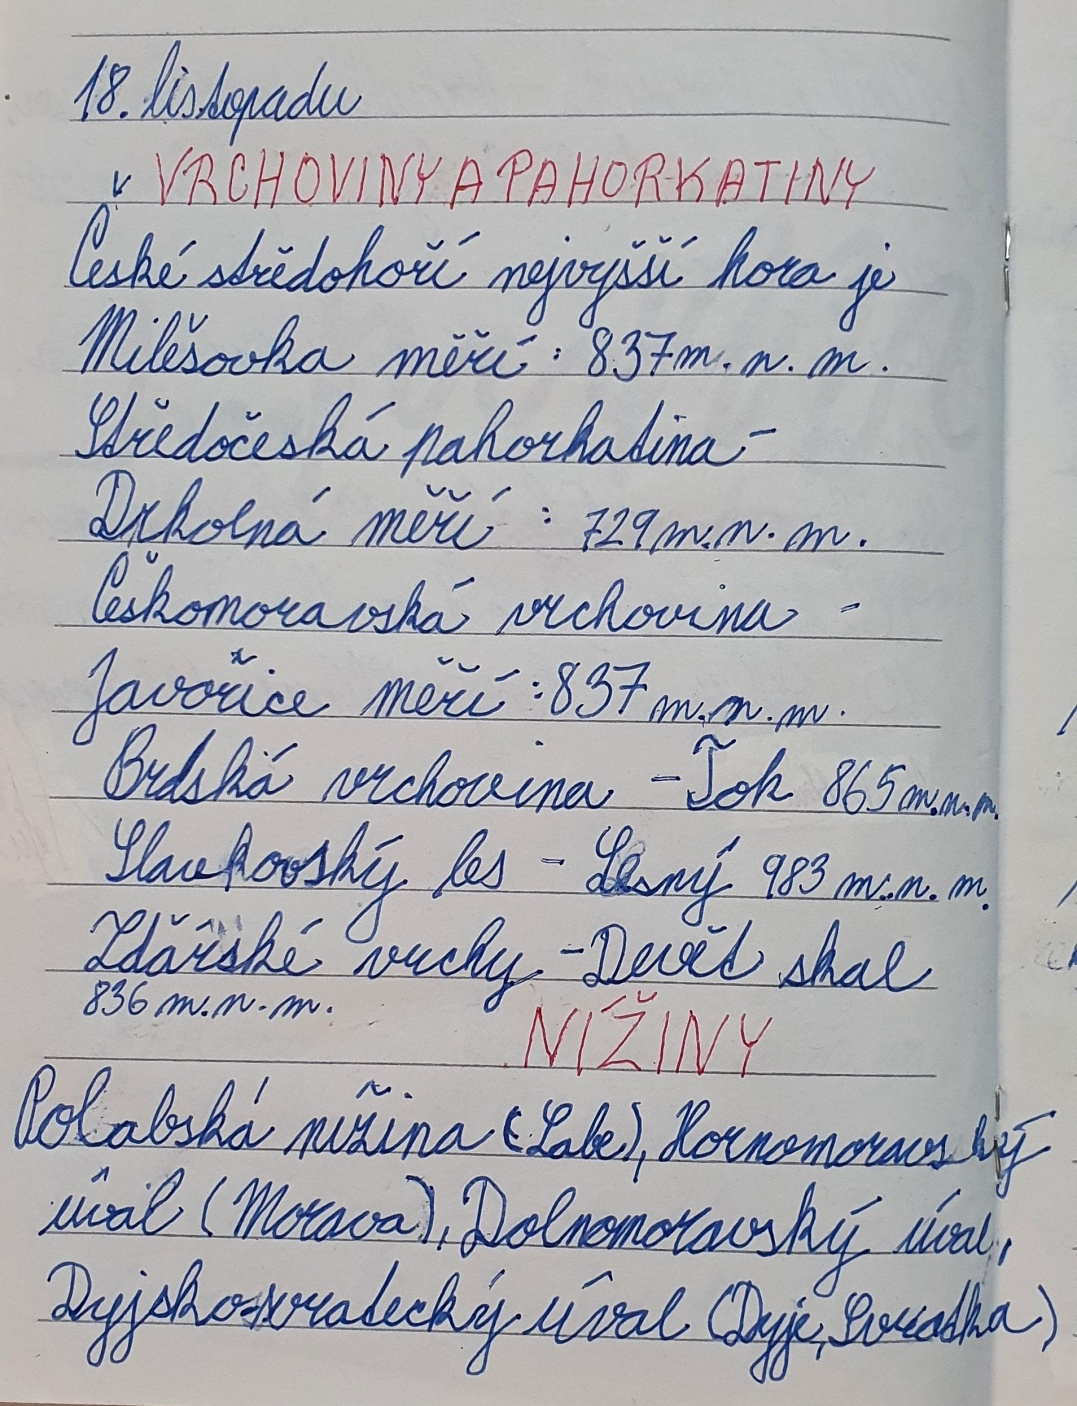 18. listopadu
VRCHOVINY A PAHORKATINY
České středohoří nejvyšší hora je
Milešovka měří : 837 m. n. m.
Středočeská pahorkatina -
Drkolná měří : 729 m. n. m.
Českomoravská vrchovina -
Javořice měří : 837 m. n. m.
Brdská vrchovina - Tok 865 m. n. m.
Slavkovský les - Lesný 983 m. n. m.
Ždářské vrchy - Devět skal
836 m. n. m.
NÍŽINY
Polabská nížina (Labe), Hornomoravský
úval (Morava), Dolnomoravský úval,
Dyjsko-svratecký úval (Dyje, Svratka)